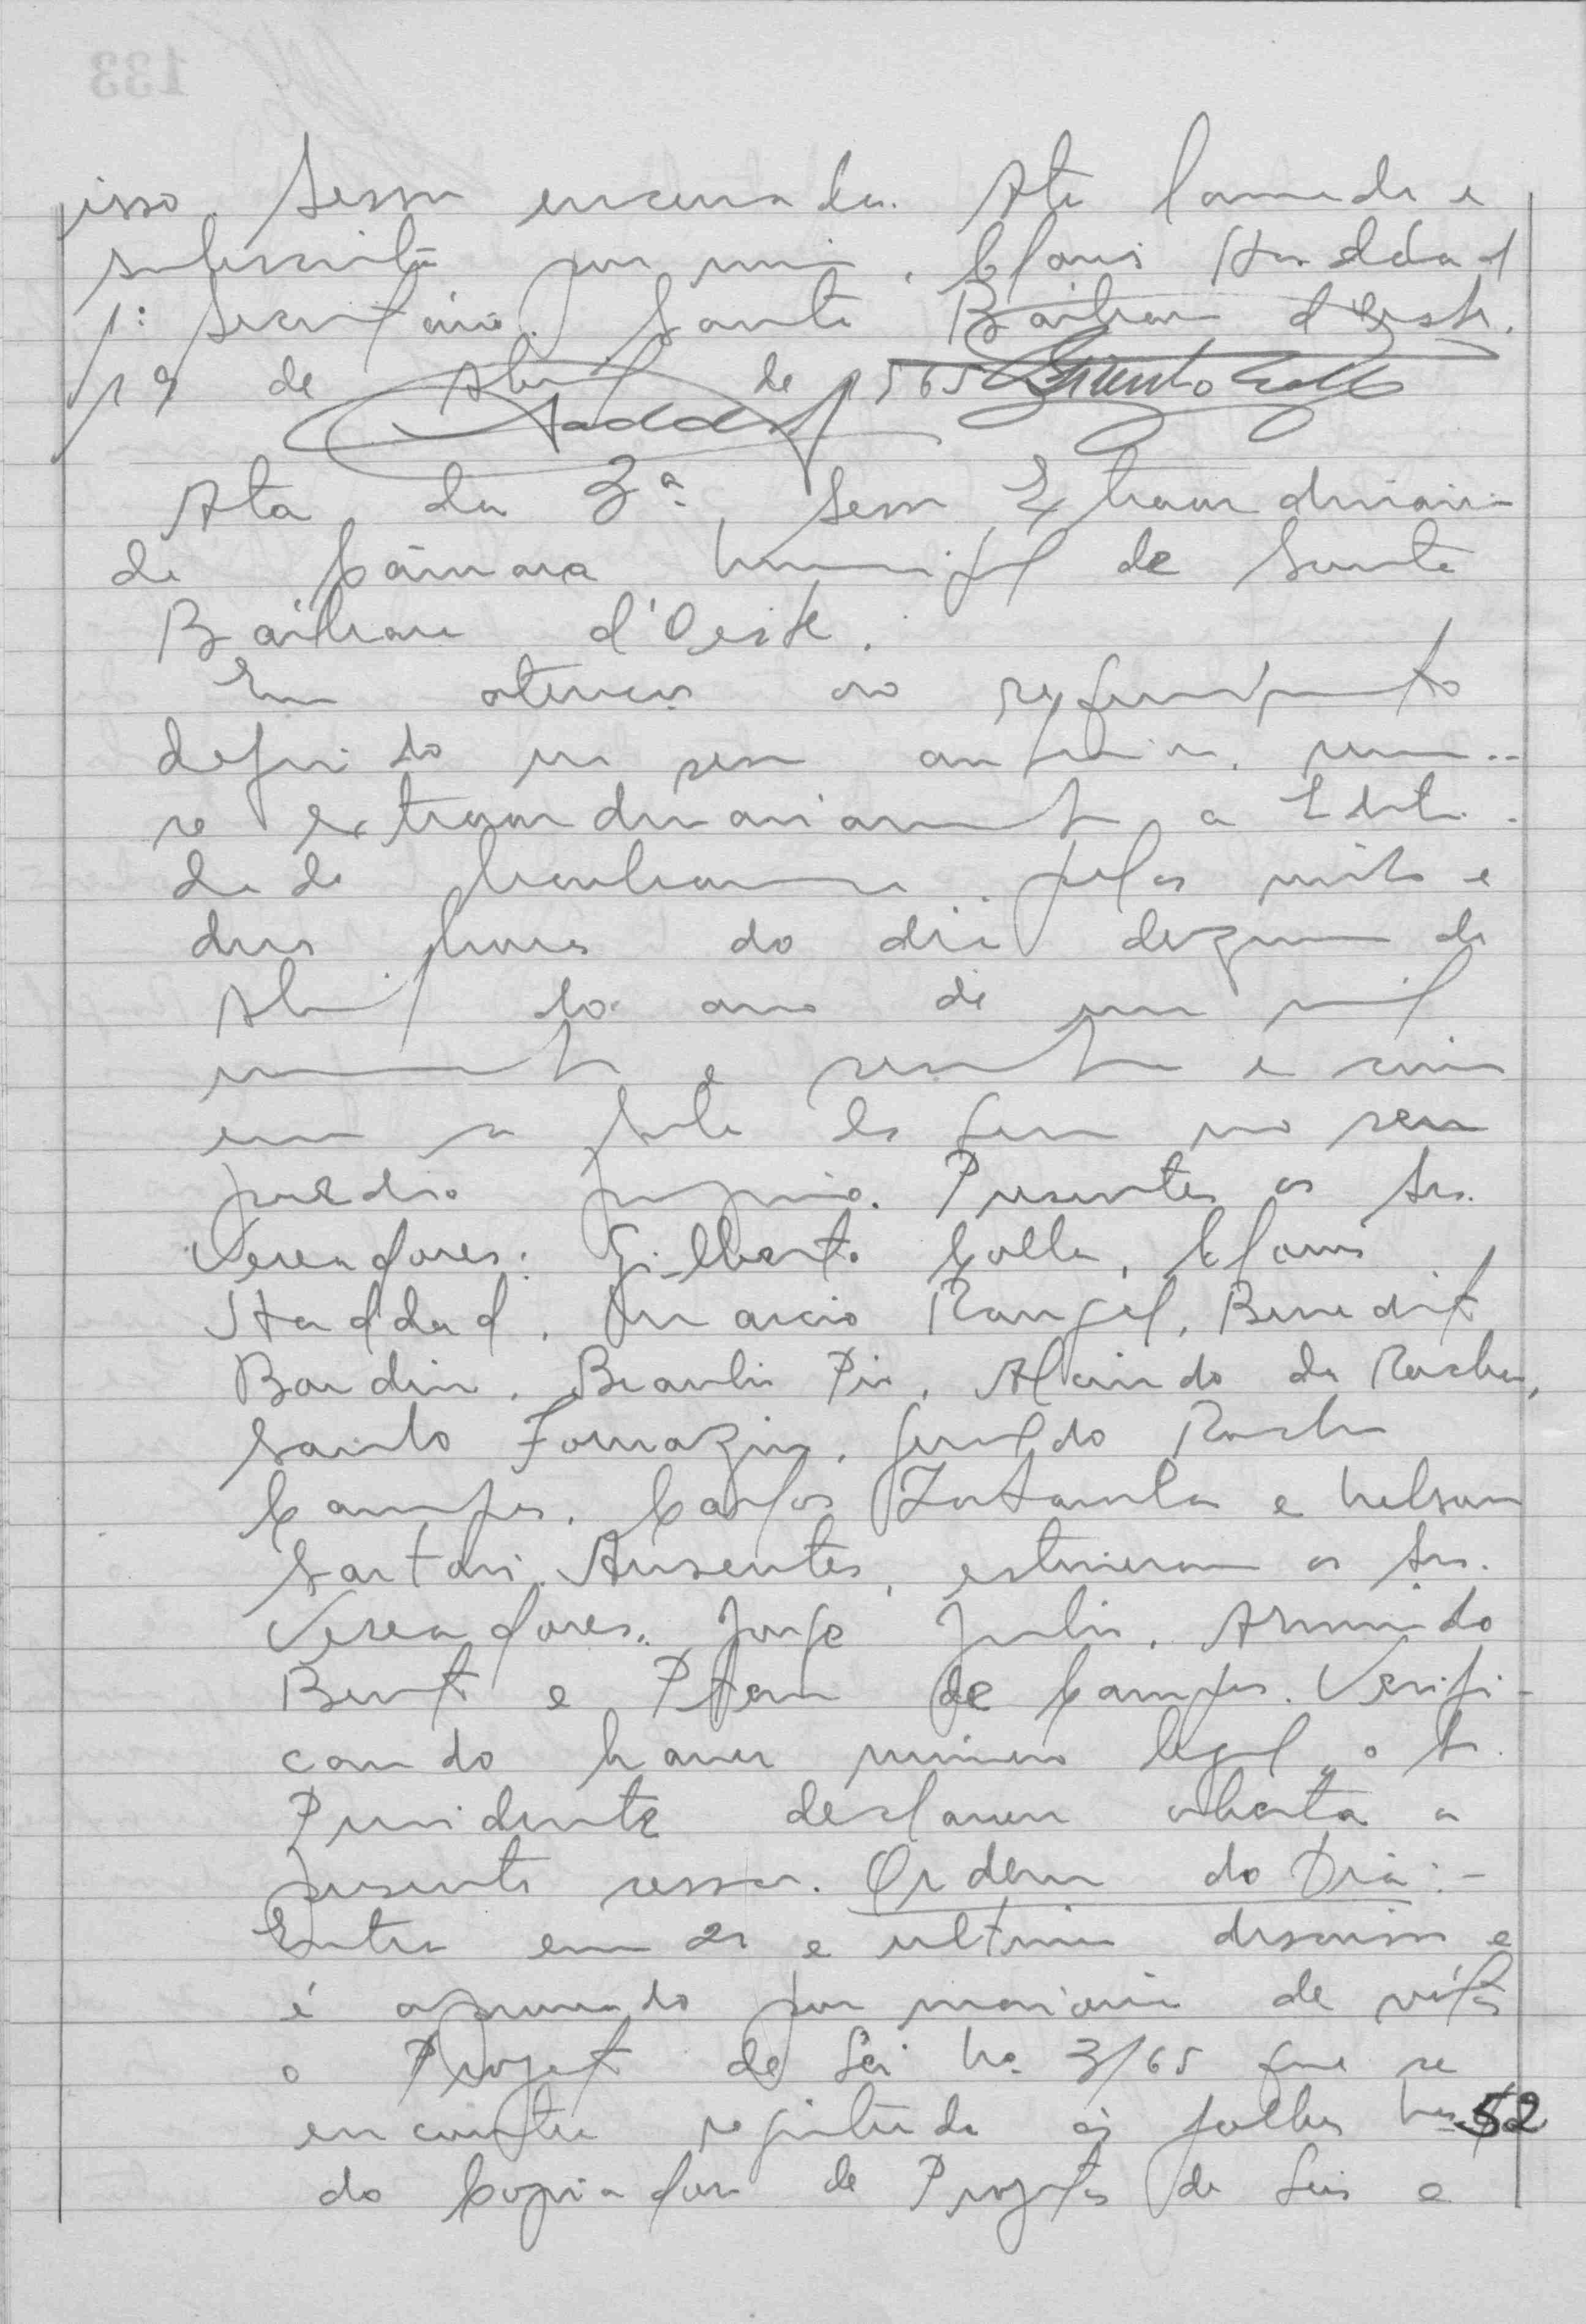 isso, sessão encerrada. Ata lavrada e
subscrita por mim, Clovis Haddad
1º Secretário. Santa Bárbara d'Oeste,
19 de Abril de 1965
Haddad
Ata da 3ª Sessão Extraordinária
da Câmara Municipal de Santa
Bárbara d'Oeste.
Em atenção ao requerimento
deferido na sessão anterior, reuniu-
se extraordinariamente a Edili-
dade barbarense, pelas vinte e
duas horas do dia dezenove de
Abril do ano de um mil
novecentos e sessenta e cinco
em a sala de
prédio próprio. Presentes os Srs.
Vereadores: Gilberto Colla, Clovis
Haddad, Inarcio Rangel, Benedito
Bardin, Braulio Pio, Alcindo da Rocha,
Santo Fornazin, Geraldo Rocha
Campos, Carlos e Nelson
Sartori. Ausentes, estiveram os Srs.
Vereadores: Jorge Julio, Armindo
Bento e de Campos. Verifi-
cando haver número legal, o Sr.
Presidente declarou aberta a
presente sessão. Ordem do Dia:-
Entra em 2a e ultima discussão e
é aprovado por maioria de votos
o Projeto de Lei No 3/65 que se
encontra registrado às folhas 52
do Copiador de Projetos de Leis e